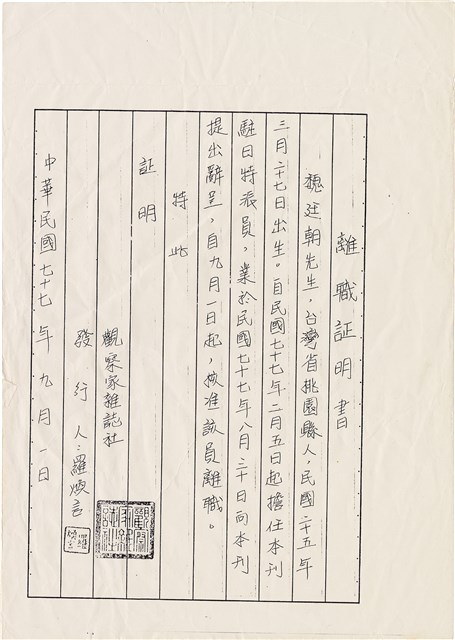 離職証明書
魏廷朝先生，台灣省桃園縣人，民國二十五年
三月二十七日出生。自民國七十七年二月五日起擔任本刊
駐日特派員，業於民國七十七年八月三十日向本刊
提出辭呈，自九月一日起，核准該員離職。
特此
証明
觀察家雜誌社
發行人：羅煥
中華民國七十七年九月一日